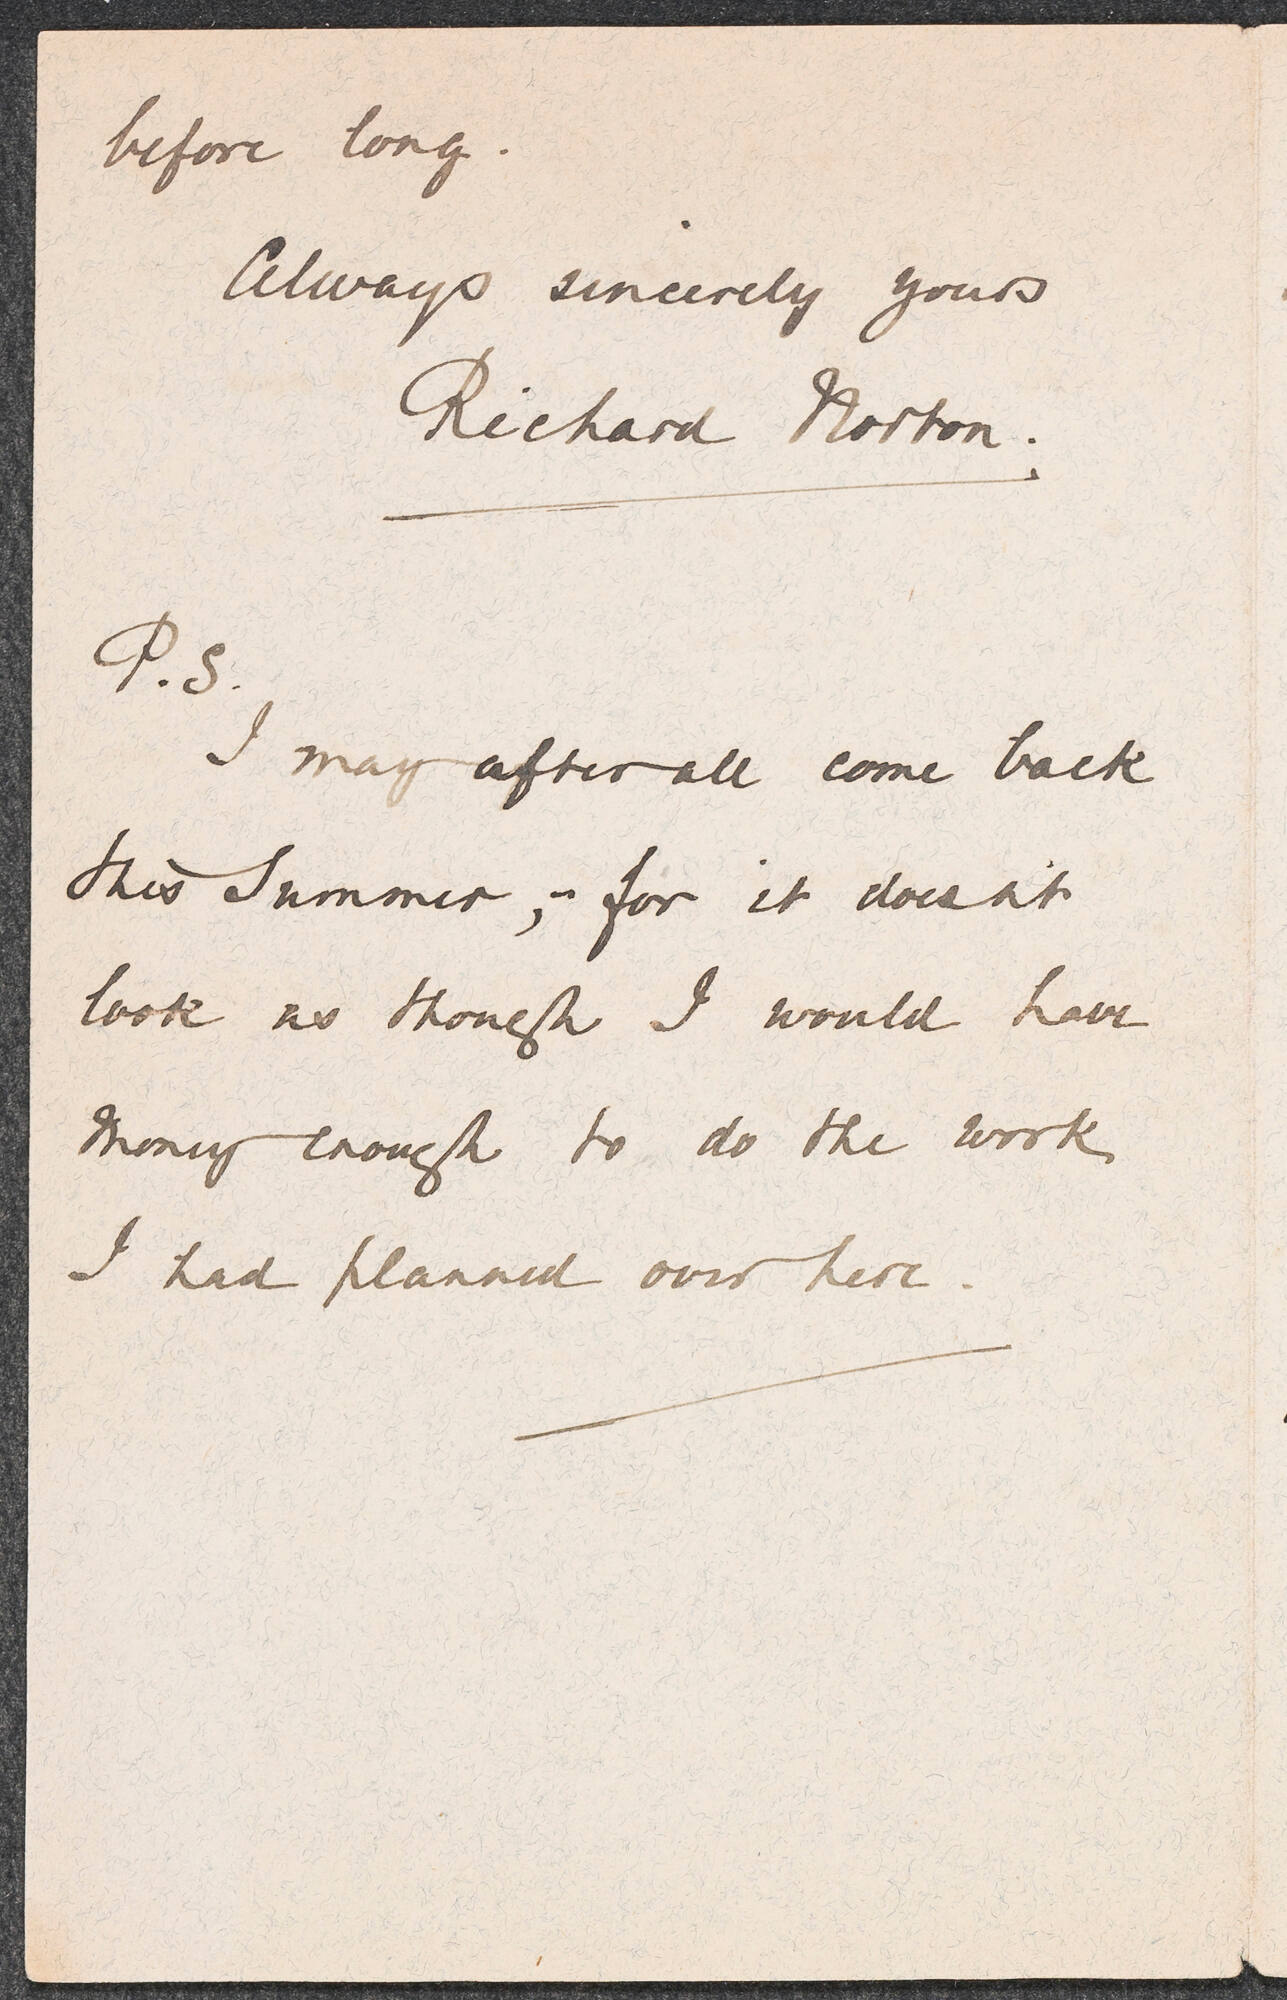 before long.
Always sincerely yours
Richard Norton.
P.S.
I may after all come back
this Summer,- for it doesn't
look as though I would have
money enough to do the work
I had planned over here.